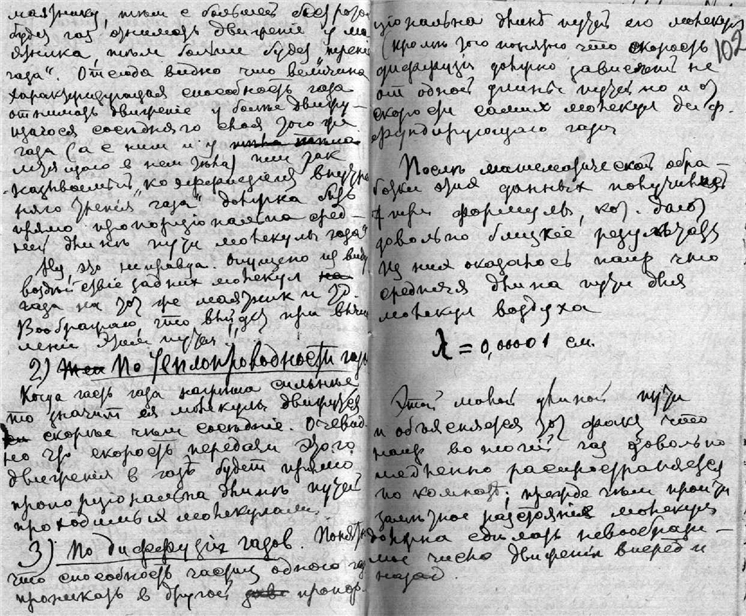 маятнику, тѣм с большей быстротой
будет газ отнимать движенiе у ма-
ятника, тѣм больше будет "тренiе
газа". Отсюда видно что величина
характеризующая способность газа
отнимать движенiе у болѣе движу-
щагося соседняго слоя того же
газа (а с ним и у
нем тѣла) или так
называемый "коэффицiент внутрен-
няго тренiя газа" должна быть
прямо пропорцiональна сред-
ней длинѣ пути молекулы газа"
Ну, это неправда. Опущено из виду
воздѣйствiе задних молекул
газа на тот же маятник и т.д.
Воображаю, что выйдет при вычи-
сленiи этим путем!!
2) По теплопроводности газа
Когда часть газа нагрѣта сильнѣе
то значит ея молекулы движутся
скорѣе чѣм соседнiе. Очевид-
но что скорость передачи этого
движенiя в газѣ будет прямо
пропорцiональна длинѣ путей
проходимых молекулами.
3) По диффузiи газов. Понятно
что способность частиц одного газа
проникать в другой пропор-
цiональна длинѣ путей его молекул
(кромѣ того понятно что скорость
диффузiи должна зависѣть не
от одной длины пути но и от
скорости самих молекул диф-
фундирующаго газа
102
Послѣ математической обра-
ботки этих данных получились
три формулы, кот. дают
довольно близкiе результаты
Из них оказалось напр что
средняя длина пути для
молекул воздуха
λ = 0,00001 см.
Этой малой длиной пути
и объясняется тот факт что
напр вонючiй газ довольно
медленно распространяется
по комнатѣ; прежде чѣм пройти
замѣтное разстоянiе молекула
должна сдѣлать невообрази-
мое число движенiй вперед и
назад.